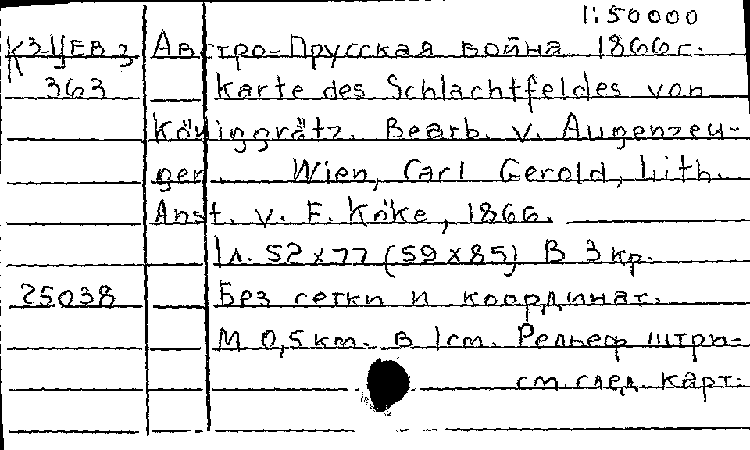 1:50000
К 3-ЦЕВ 3 Австро-Прусская война 1866 г.
363 Karte des Schlachtfeldes von
Königgrätz. Bearb. v. Augenzeu-
gen. Wien, Carl Gerold, Lith.
Anst. v. F. Köke, 1866.
1 л. 52 x 77 (59 x 85) В 3 кр.
25038 Без сетки и координат.
М 0,5 км. в 1 см. Рельеф штри-
см. след. карт.